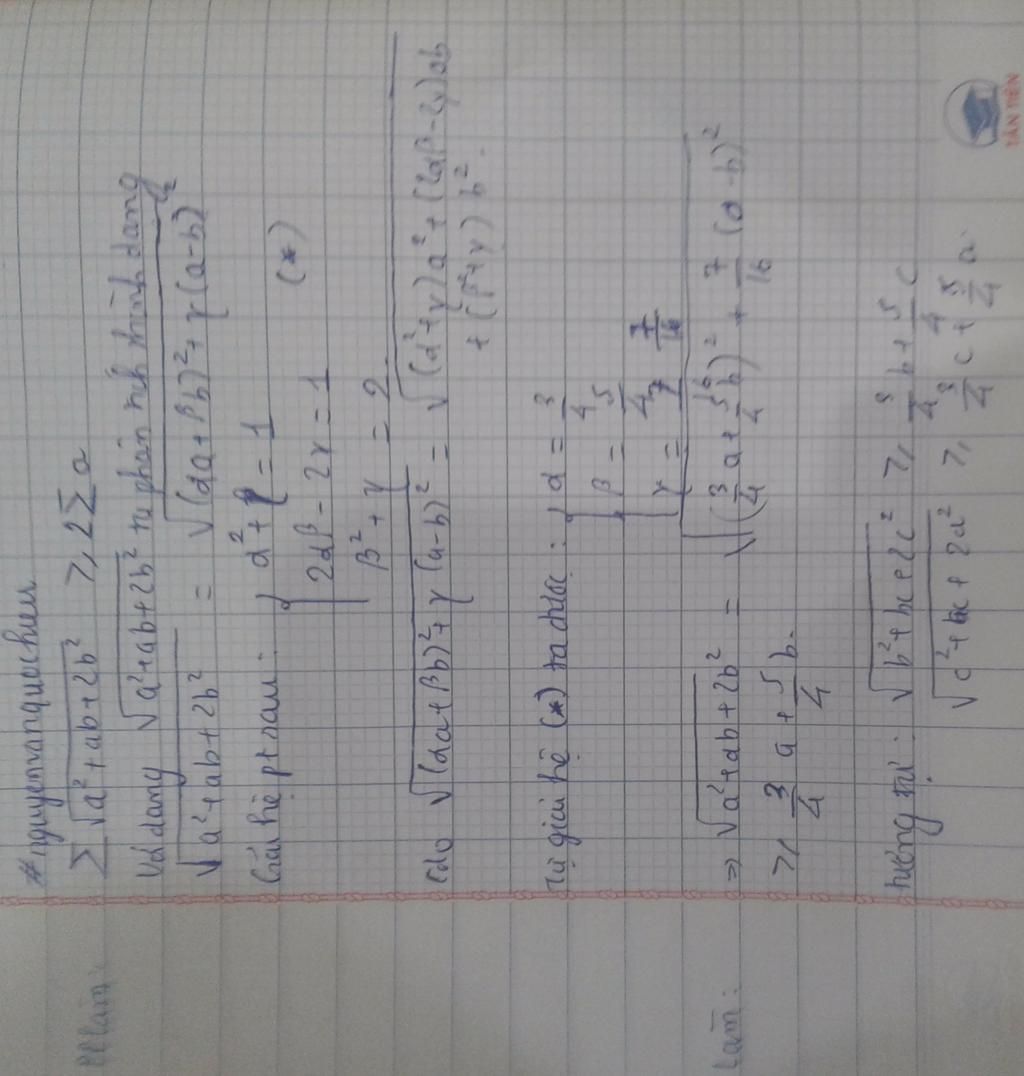 #nguyenvanquochieu
PP làm: ∑ √(a²+ab+2b²) ≥ 2∑a
Với dạng √(a²+ab+2b²) ta phân tích thành dạng
√(a²+ab+2b²) = √((αa+βb)²+γ(a-b)²)
Giải hệ pt sau: { α²+γ=1
2αβ-2γ=1 (*)
β²+γ=2
(do √((αa+βb)²+γ(a-b)²) = √((α²+γ)a²+(2αβ-2γ)ab
+(β²+γ)b²
Từ giải hệ (*) ta được: { α = 3/4
β = 5/4
γ = 7/16
Làm: ⇒ √(a²+ab+2b²) = √((3/4 a+5/4 b)²+7/16 (a-b)²)
≥ 3/4 a+5/4 b.
tương tự: √(b²+bc+2c²) ≥ 3/4 b+5/4 c
√(c²+ac+2a²) ≥ 3/4 c+5/4 a
TÂN TIẾN